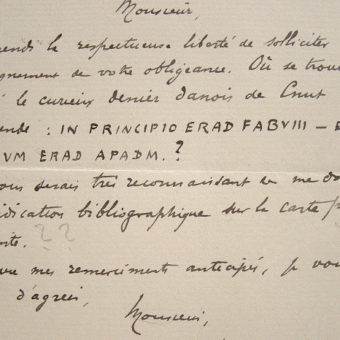 Monsieur,
ends la respectueuse liberté de solliciter
gnement de votre obligeance. Où se trouv
le curieux denier danois de Cnut
ende : IN PRINCIPIO ERAD FABVIII –
VM ERAD APADM. ?
ous serais très reconnaissant de me do
dication bibliographique sur la carte p
te. ??
mes remerciments anticipés, je vou
d'agréer,
Monsieur,